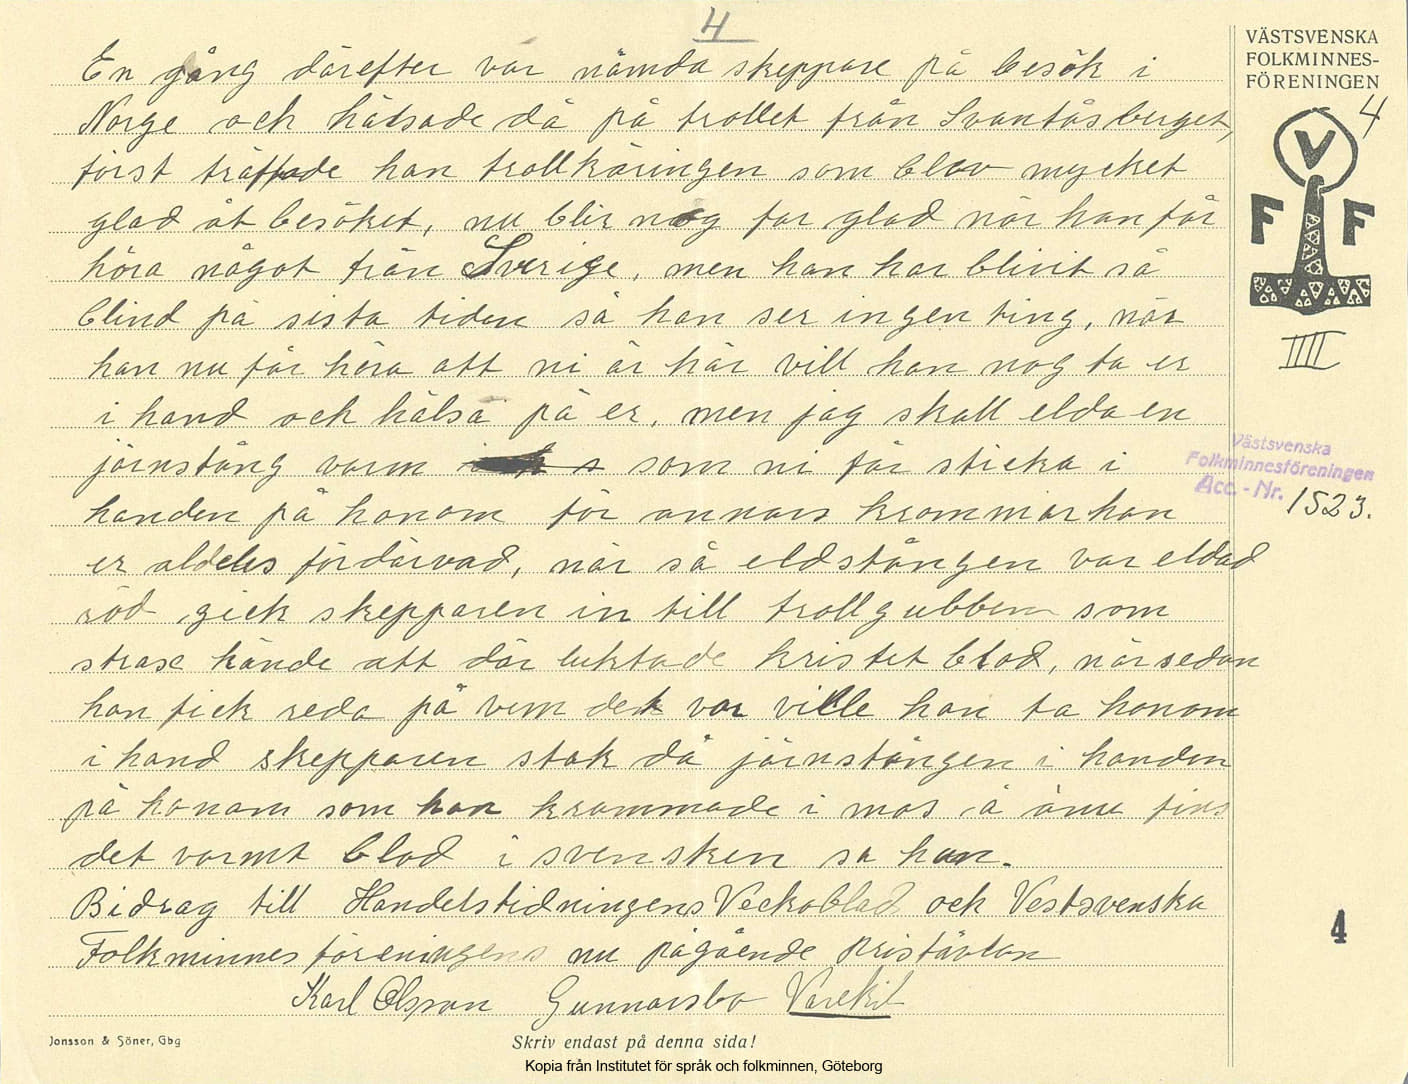 4
VÄSTSVENSKA
FOLKMINNES-
FÖRENINGEN
4
V
F F
IIII
Västsvenska
Folkminnesföreningen
Acc.-Nr. 1523.
En gång därefter var nämda skeppare på besök i
Norge och hälsade då på trollet från Svantåsberget,
först träffade han trollkäringen som blev mycket
glad åt besöket, nu blir nog far glad när han får
höra något från Sverige, men han har blivit så
blind på sista tiden så han ser ingenting, när
han nu får höra att ni är här vill han nog ta er
i hand och hälsa på er, men jag skall elda en
järnstång varm som ni får sticka i
handen på honom för annars krammar han
er aldeles fördärvad, när så eldstången var eldad
röd gick skepparen in till trollgubben som
strax kände att där luktade kristet blod, när sedan
han fick reda på vem det var ville han ta honom
i hand skepparen stak då järnstången i handen
på honom som han krammade i mos å ännu fins
det varmt blod i svensken sa han.
Bidrag till Handelstidningens Veckoblad och Vestsvenska
Folkminnesföreningens nu pågående pristävlan
Karl Olsson Gunnarsbo Varekil
Jonsson & Söner, Gbg
Skriv endast på denna sida!
4
Kopia från Institutet för språk och folkminnen, Göteborg